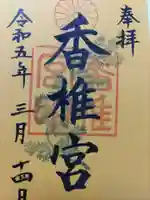 奉拝
香椎宮
令和五年三月十四日